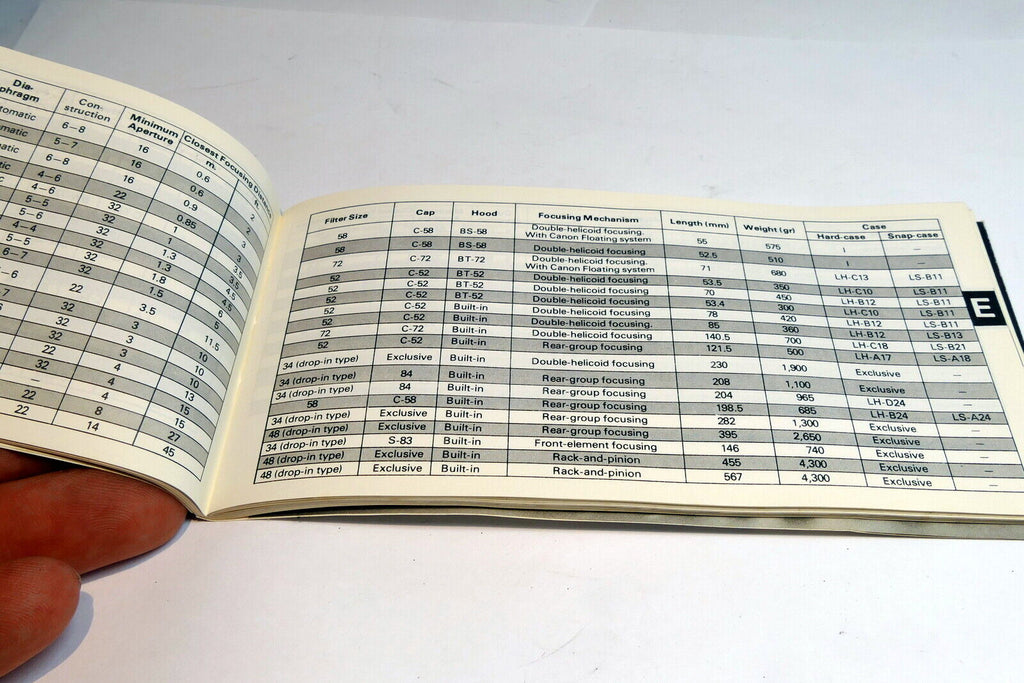 Dia-
phragm
Con-
struction
Minimum
Aperture
Closest Focusing Distance
m.
ft
6–8 16 0.6 2
5–7 16 0.6
6–8 16 0.9 3
4–6 22 0.85 3
4–6 32 1
5–5 32 1 3.5
5–6 32 1.3 4.5
4–4 32 1.3 4.5
5–5 32 1.8 6
6–7 32 1.5 5
22 3.5 11.5
32 3 10
32 3 10
32 4 13
22 4
32 4
–
22 8 27
22 14 45
Filter Size Cap Hood Focusing Mechanism Length (mm) Weight (gr) Case
Hard-case Snap-case
58 C-58 BS-58 Double-helicoid focusing. With Canon Floating system 55 575
58 C-58 BS-58 Double-helicoid focusing 52.5 510
72 C-72 BT-72 Double-helicoid focusing. With Canon Floating system 71 680 LH-C13 LS-B11
52 C-52 BT-52 Double-helicoid focusing 53.5 350 LH-C10 LS-B11
52 C-52 BT-52 Double-helicoid focusing 70 450 LH-B12 LS-B11
52 C-52 BT-52 Double-helicoid focusing 53.4 300 LH-C10 LS-B11
52 C-52 Built-in Double-helicoid focusing 78 420 LH-B12 LS-B11
52 C-52 Built-in Double-helicoid focusing. 85 360 LH-B12 LS-B13
72 C-72 Built-in Double-helicoid focusing 140.5 700 LH-C18 LS-B21
52 C-52 Built-in Rear-group focusing 121.5 500 LH-A17 LS-A18
34 (drop-in type) Exclusive Built-in Double-helicoid focusing 230 1,900 Exclusive –
34 (drop-in type) 84 Built-in Rear-group focusing 208 1,100 Exclusive –
34 (drop-in type) 84 Built-in Rear-group focusing 204 965 LH-D24 –
58 C-58 Built-in Rear-group focusing 198.5 685 LH-B24 LS-A24
34 (drop-in type) Exclusive Built-in Rear-group focusing 282 1,300 Exclusive –
48 (drop-in type) Exclusive Built-in Rear-group focusing 395 2,650 Exclusive –
34 (drop-in type) S-83 Built-in Front-element focusing 146 740 Exclusive –
48 (drop-in type) Exclusive Built-in Rack-and-pinion 455 4,300 Exclusive –
48 (drop-in type) Exclusive Built-in Rack-and-pinion 567 4,300 Exclusive –
E